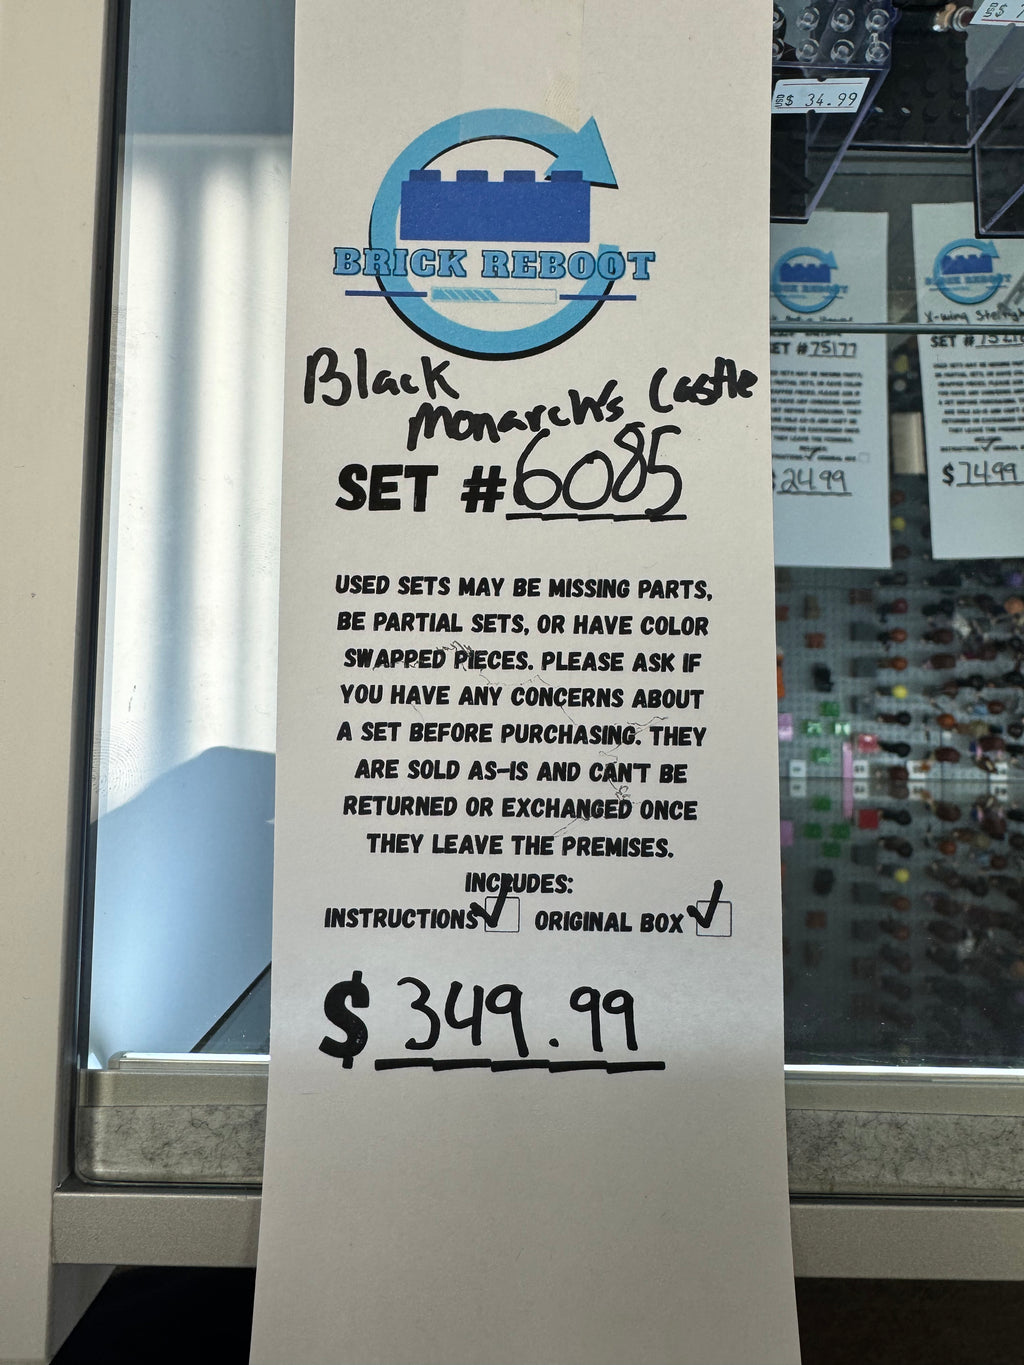 BRICK REBOOT
Black
Monarch's Castle
SET # 6085
USED SETS MAY BE MISSING PARTS,
BE PARTIAL SETS, OR HAVE COLOR
SWAPPED PIECES. PLEASE ASK IF
YOU HAVE ANY CONCERNS ABOUT
A SET BEFORE PURCHASING. THEY
ARE SOLD AS-IS AND CAN'T BE
RETURNED OR EXCHANGED ONCE
THEY LEAVE THE PREMISES.
INCLUDES:
INSTRUCTIONS ORIGINAL BOX
$ 349.99
USD$ 34.99
USD$
SET #75177
$2499
BRICK REBOOT
X-wing
SET #
$7499